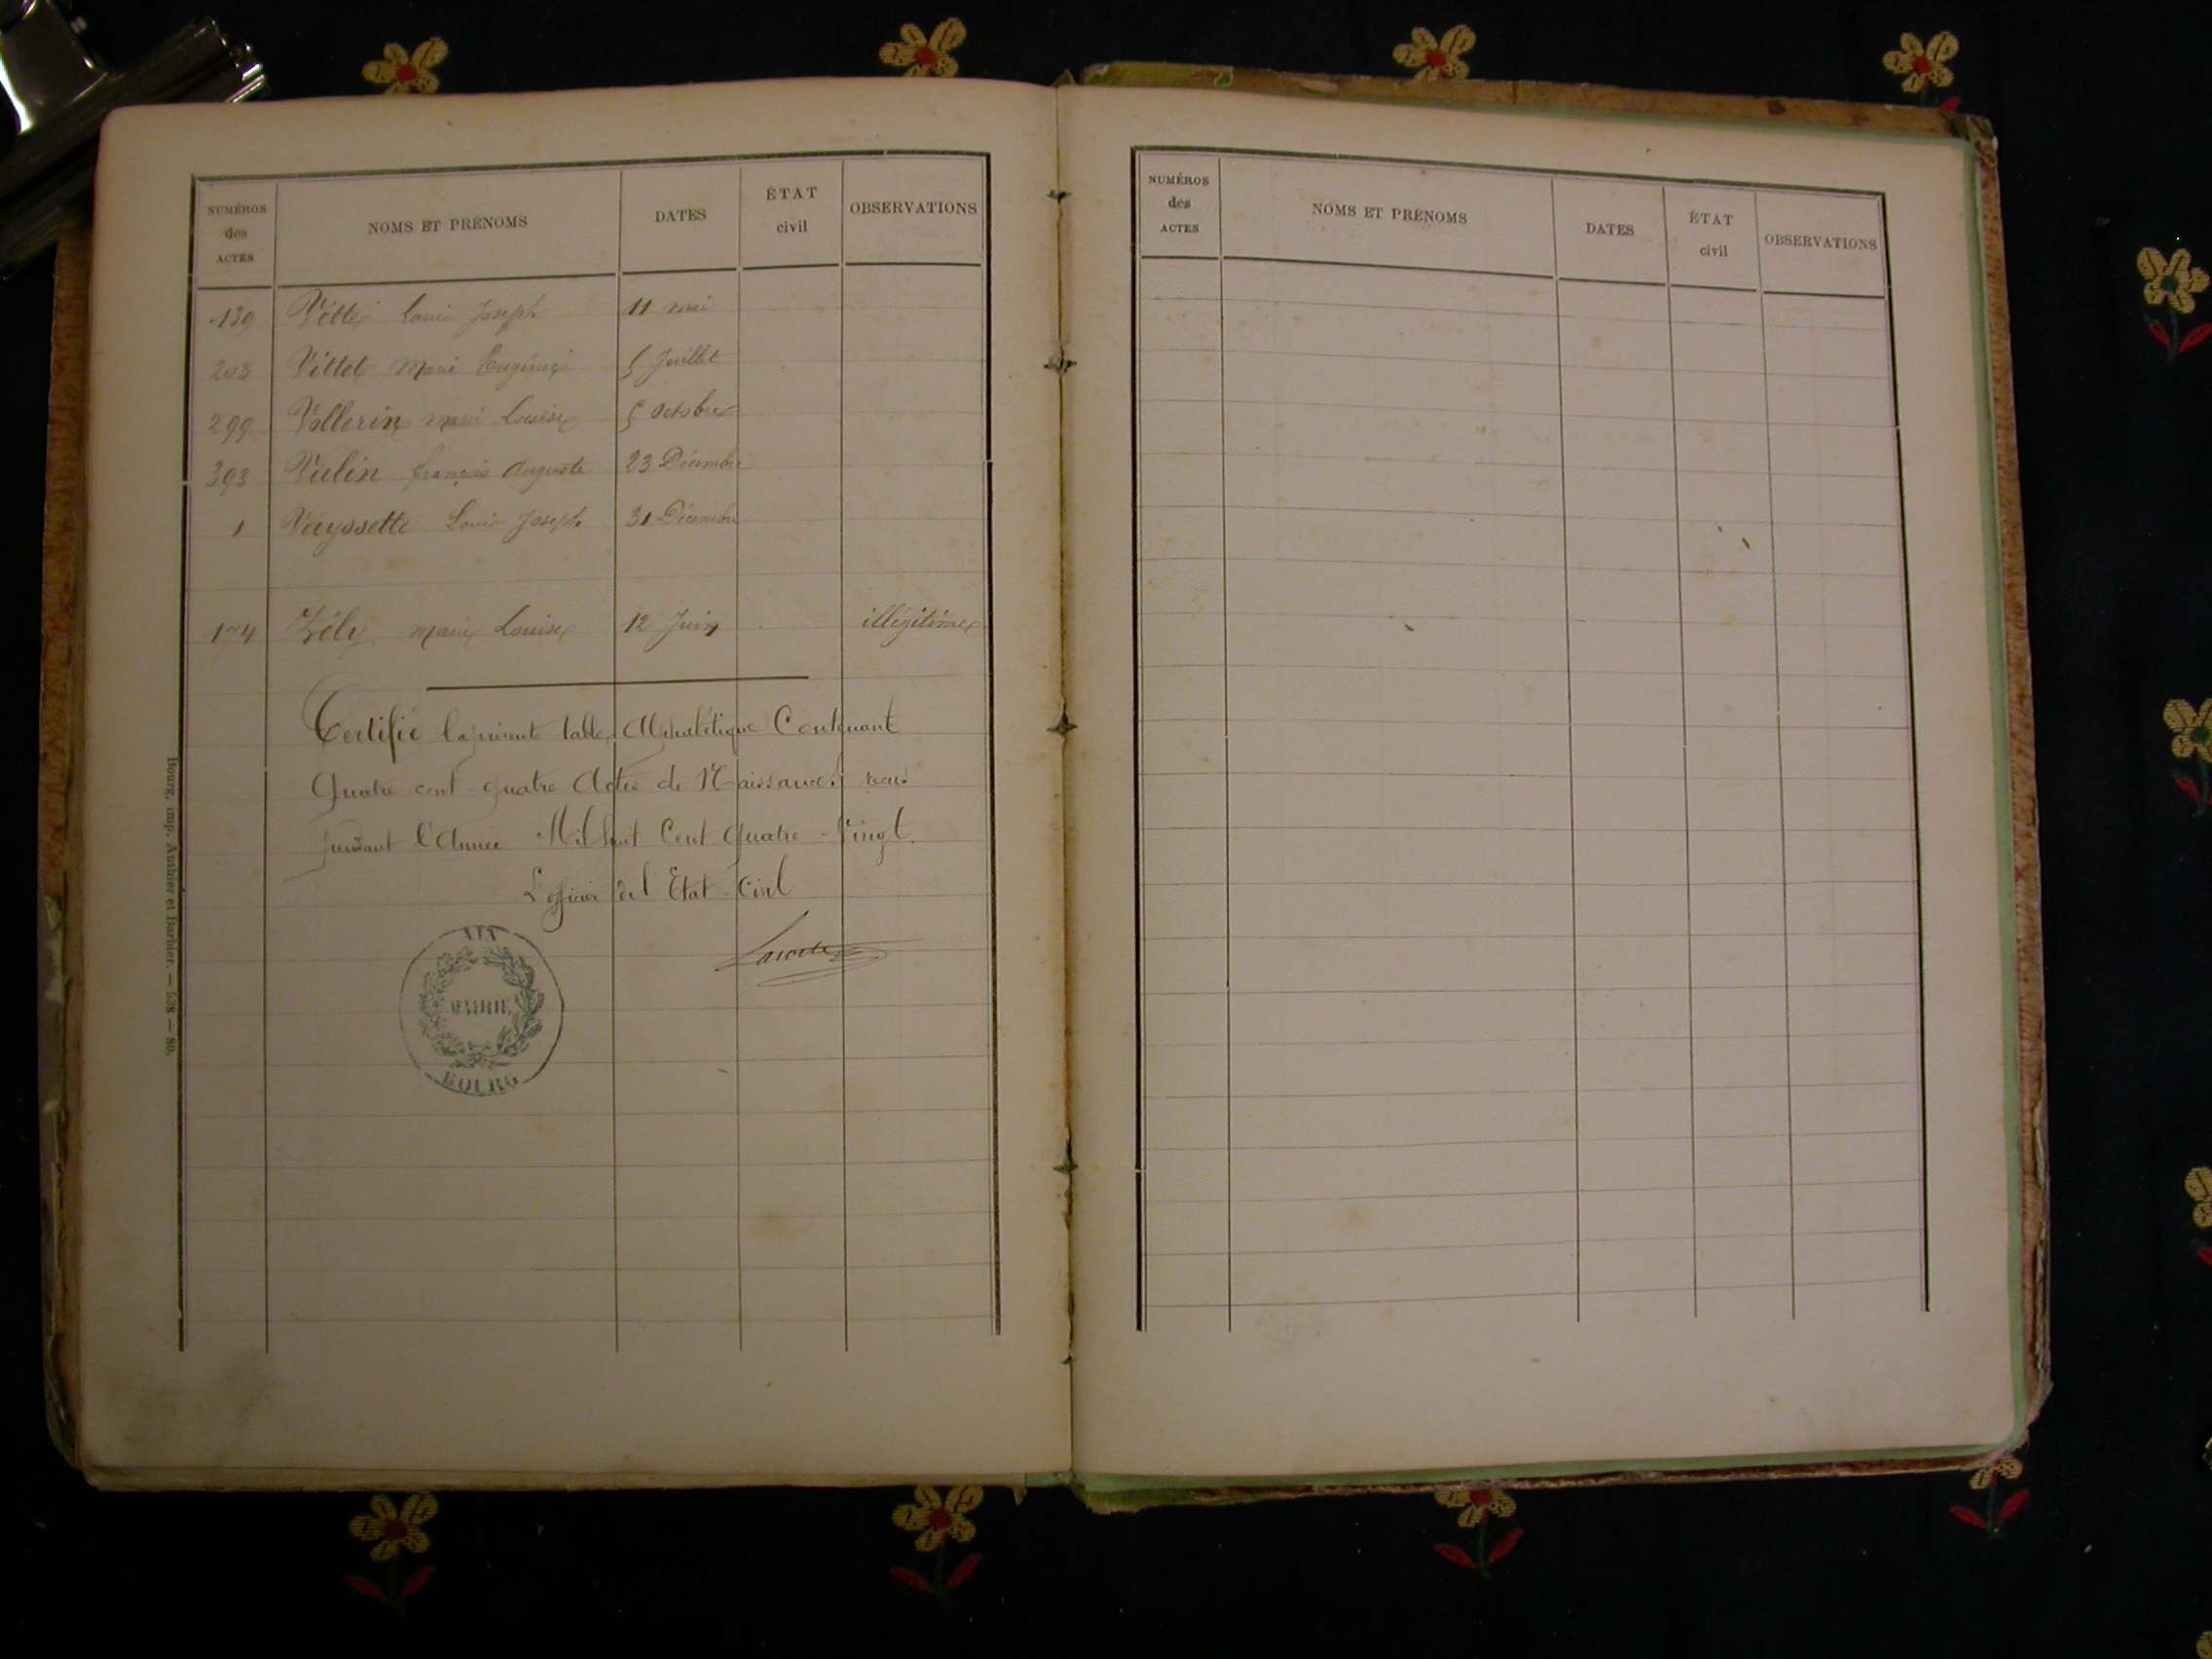 NUMÉROS des ACTES NOMS ET PRÉNOMS DATES ÉTAT civil OBSERVATIONS
139 Louis Joseph 11 mai
203 Vittet Marie Eugénie 5 Juillet
299 Vollerin marie Louise 5 Octobre
393 Vulin françois Auguste 23 Décembre
1 Veyssette Louis Joseph 31 Décembre
174 Zély marie Louise 12 Juin illégitime
Certifié la présente table Alphabétique Contenant
Quatre cent quatre Actes de Naissances reçus
pendant l'Année Mil huit Cent Quatre-Vingt.
L'officier de l'Etat-Civil
AIN
MAIRIE
BOURG
Bourg, imp. Authier et Barbier. — 538 — 80.
NUMÉROS des ACTES NOMS ET PRÉNOMS DATES ÉTAT civil OBSERVATIONS